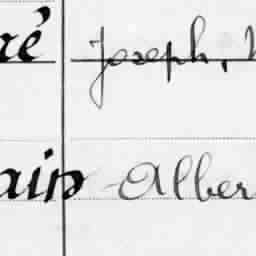 ré Joseph,
ain Alber